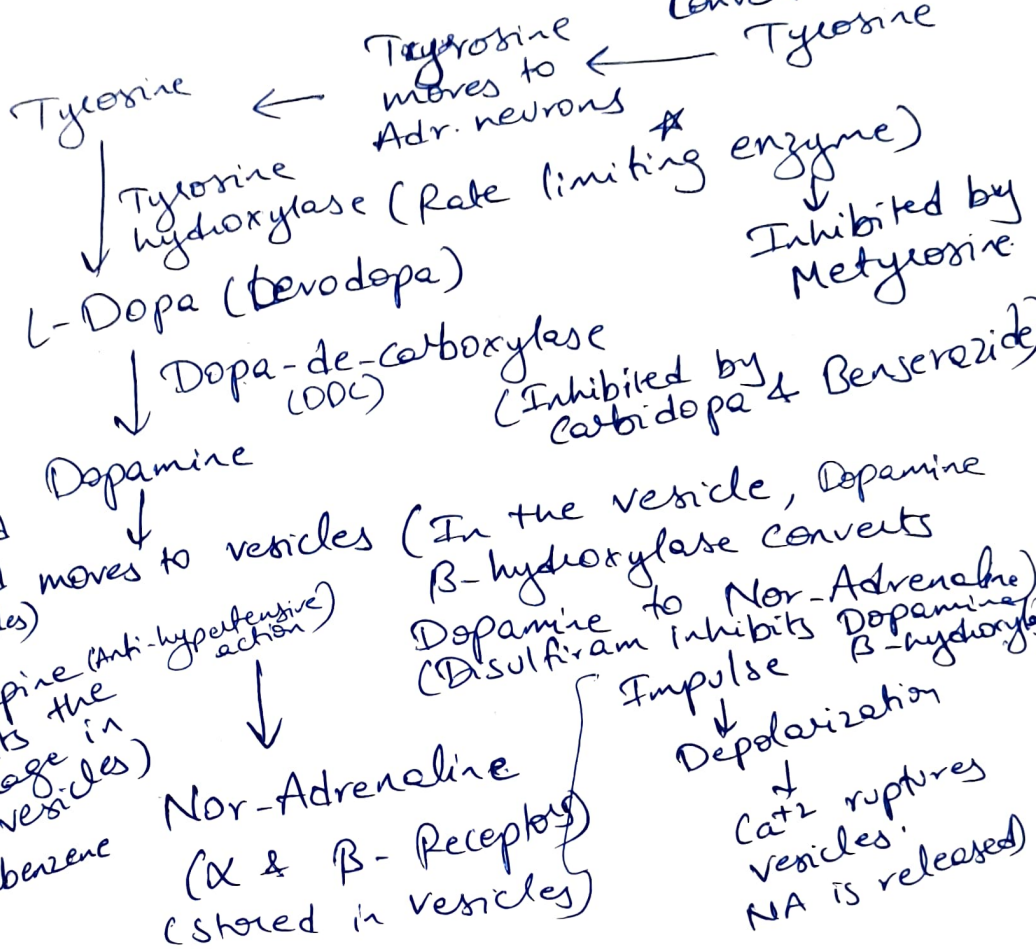 Tyrosine
Tayrosine
moves to
Adr. neurons
Tyrosine
Tyrosine
hydroxylase (Rate limiting enzyme)
Inhibited by
Metyrosine
L-Dopa (Levodopa)
Dopa-de-carboxylase
(DDC)
(Inhibited by
Carbidopa & Benserazide)
Dopamine
moves to vesicles (In the vesicle, Dopamine
β-hydroxylase converts
Dopamine to Nor-Adrenaline)
(Disulfiram inhibits Dopamine
β-hydroxyla
pine (Anti-hypertensive
action)
ts the
age in
vesicles)
benzene
Nor-Adrenaline
(α & β- Receptors)
(stored in vesicles)
Impulse
Depolarization
Ca+2 ruptures
vesicles.
NA is released)